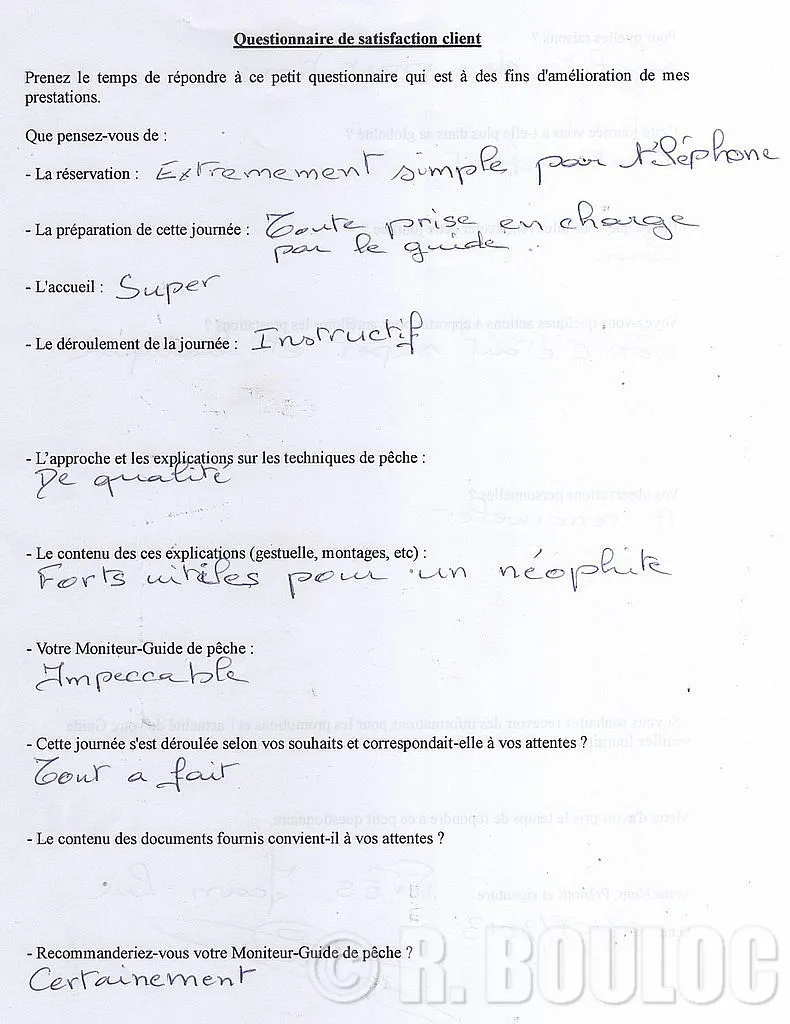 Questionnaire de satisfaction client
Prenez le temps de répondre à ce petit questionnaire qui est à des fins d'amélioration de mes
prestations.
Que pensez-vous de :
- La réservation : Extremement simple par téléphone
- La préparation de cette journée : Toute prise en charge
par le guide.
- L'accueil : Super
- Le déroulement de la journée : Instructif
- L'approche et les explications sur les techniques de pêche :
De qualité
- Le contenu des ces explications (gestuelle, montages, etc) :
Forts utiles pour un néophite
- Votre Moniteur-Guide de pêche :
Impeccable
- Cette journée s'est déroulée selon vos souhaits et correspondait-elle à vos attentes ?
Tout a fait
- Le contenu des documents fournis convient-il à vos attentes ?
- Recommanderiez-vous votre Moniteur-Guide de pêche ?
Certainement
© R. BOULOC